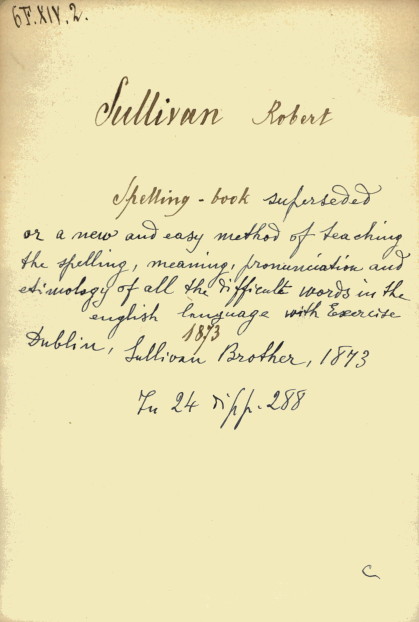 6F.XIV.2.
Sullivan Robert
Spelling-book superseded
or a new and easy method of teaching
the spelling, meaning, pronunciation and
etimology of all the difficult words in the
english language with Exercise
1873
Dublin, Sullivan Brother, 1873
In 24 di pp. 288
C